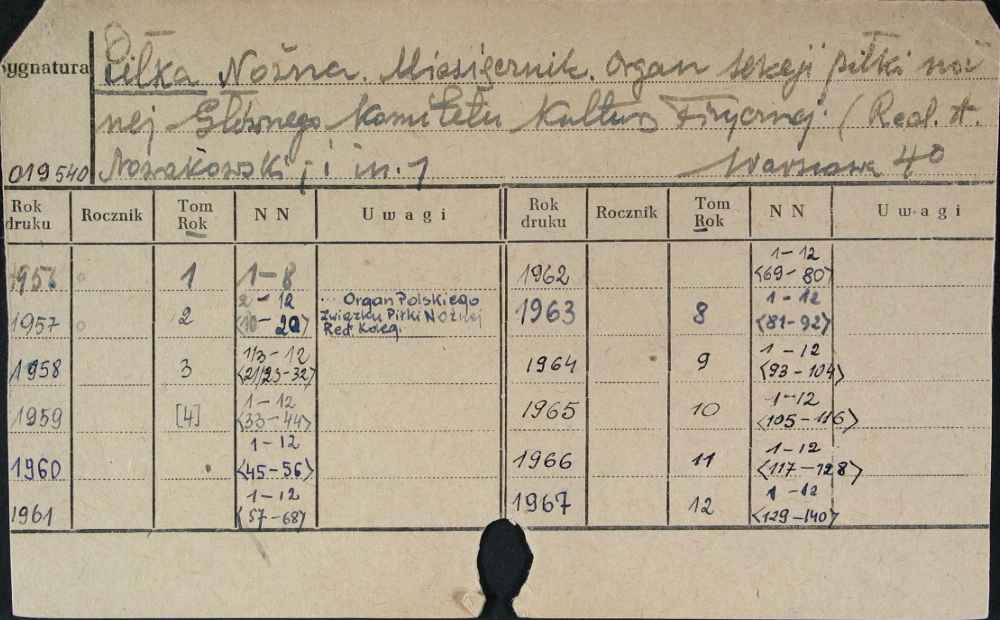 Sygnatura Piłka Nożna. Miesięcznik. Organ sekcji piłki noż
nej Głównego Komitetu Kultury Fizycznej. (Red. A.
019540 Nowakowski i in.) Warszawa 4°
Rok druku Rocznik Tom Rok N N Uwagi Rok druku Rocznik Tom Rok N N Uwagi
1956 1 1-8 1962 1-12 <69-80>
1957 2 2-12 <10-20> Organ Polskiego Związku Piłki Nożnej Red. Koleg. 1963 8 1-12 <81-92>
1958 3 1/3-12 <21/23-32> 1964 9 1-12 <93-104>
1959 [4] 1-12 <33-44> 1965 10 1-12 <105-116>
1960 1-12 <45-56> 1966 11 1-12 <117-128>
1961 1-12 <57-68> 1967 12 1-12 <129-140>